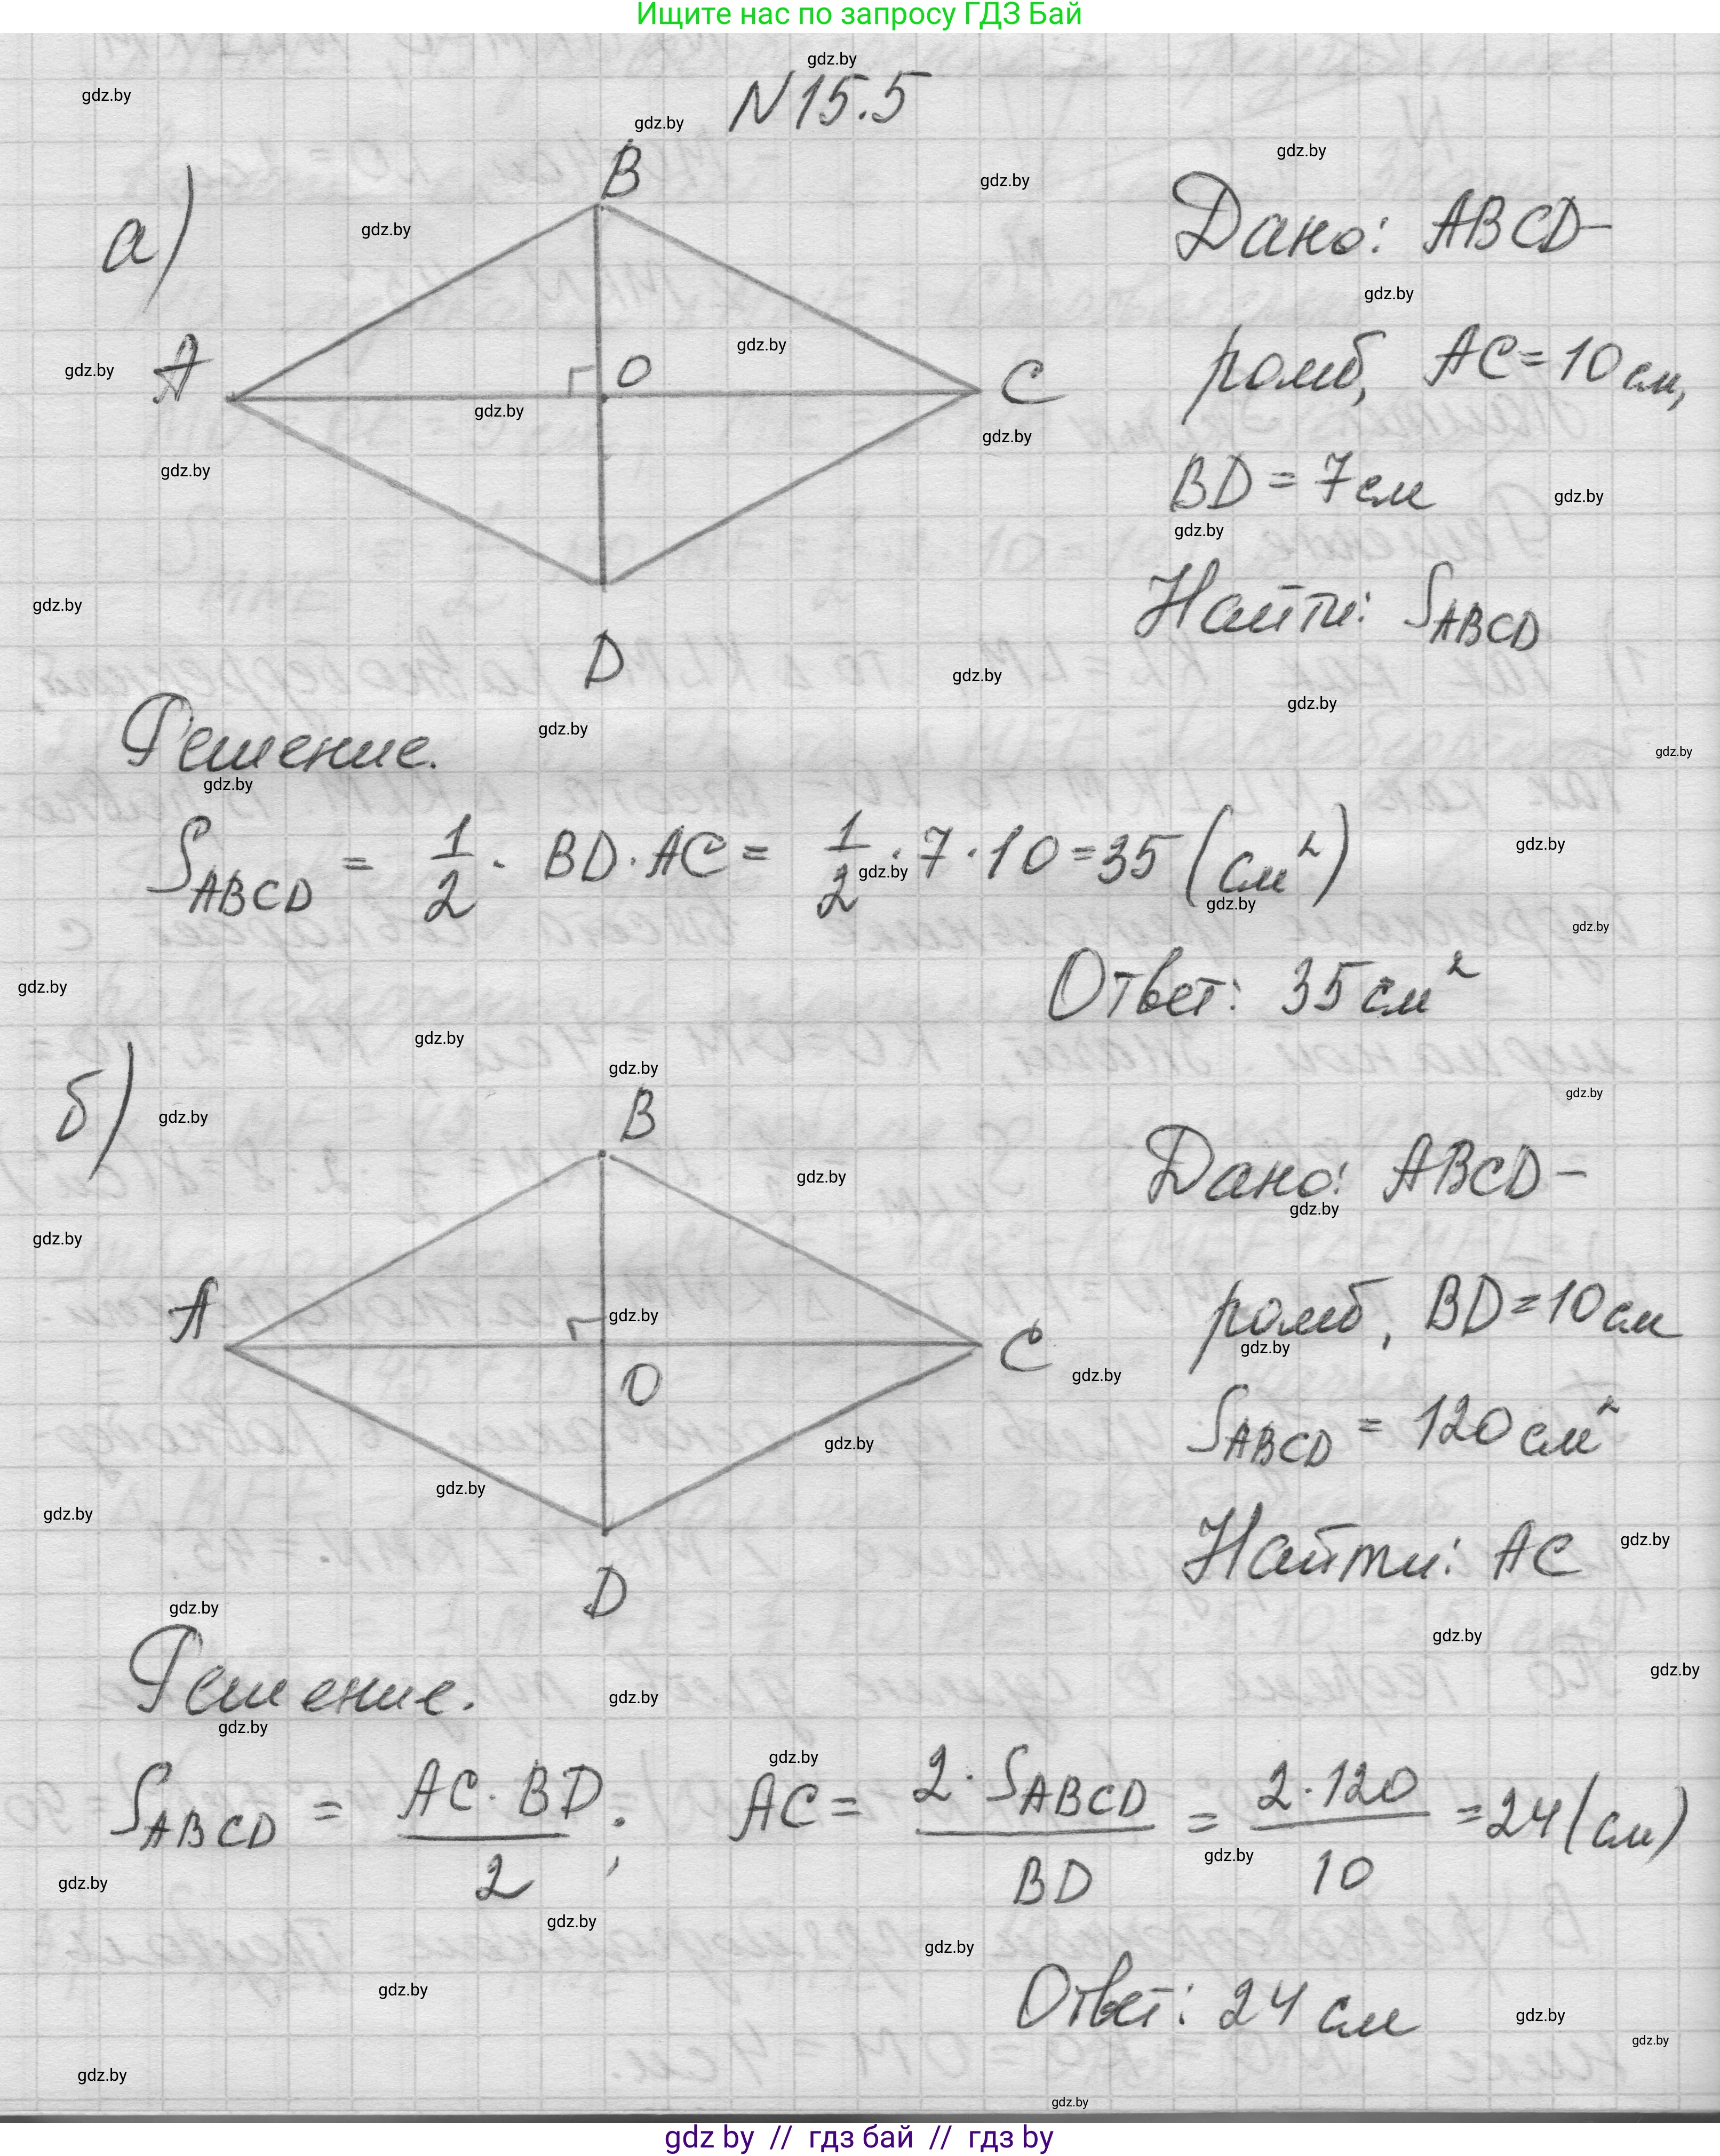 Ищите нас по запросу ГДЗ Бай
N 15.5
а)
B
A
O
C
D
Дано: ABCD-
ромб, AC = 10 см,
BD = 7 см
Найти: S_ABCD
Решение.
S_ABCD = 1/2 · BD · AC = 1/2 · 7 · 10 = 35 (см²)
Ответ: 35 см²
б)
B
A
O
C
D
Дано: ABCD-
ромб, BD = 10 см
S_ABCD = 120 см²
Найти: AC
Решение.
S_ABCD = AC · BD / 2 ; AC = 2 · S_ABCD / BD = 2 · 120 / 10 = 24 (см)
Ответ: 24 см
gdz.by
gdz by // гдз бай // гдз by